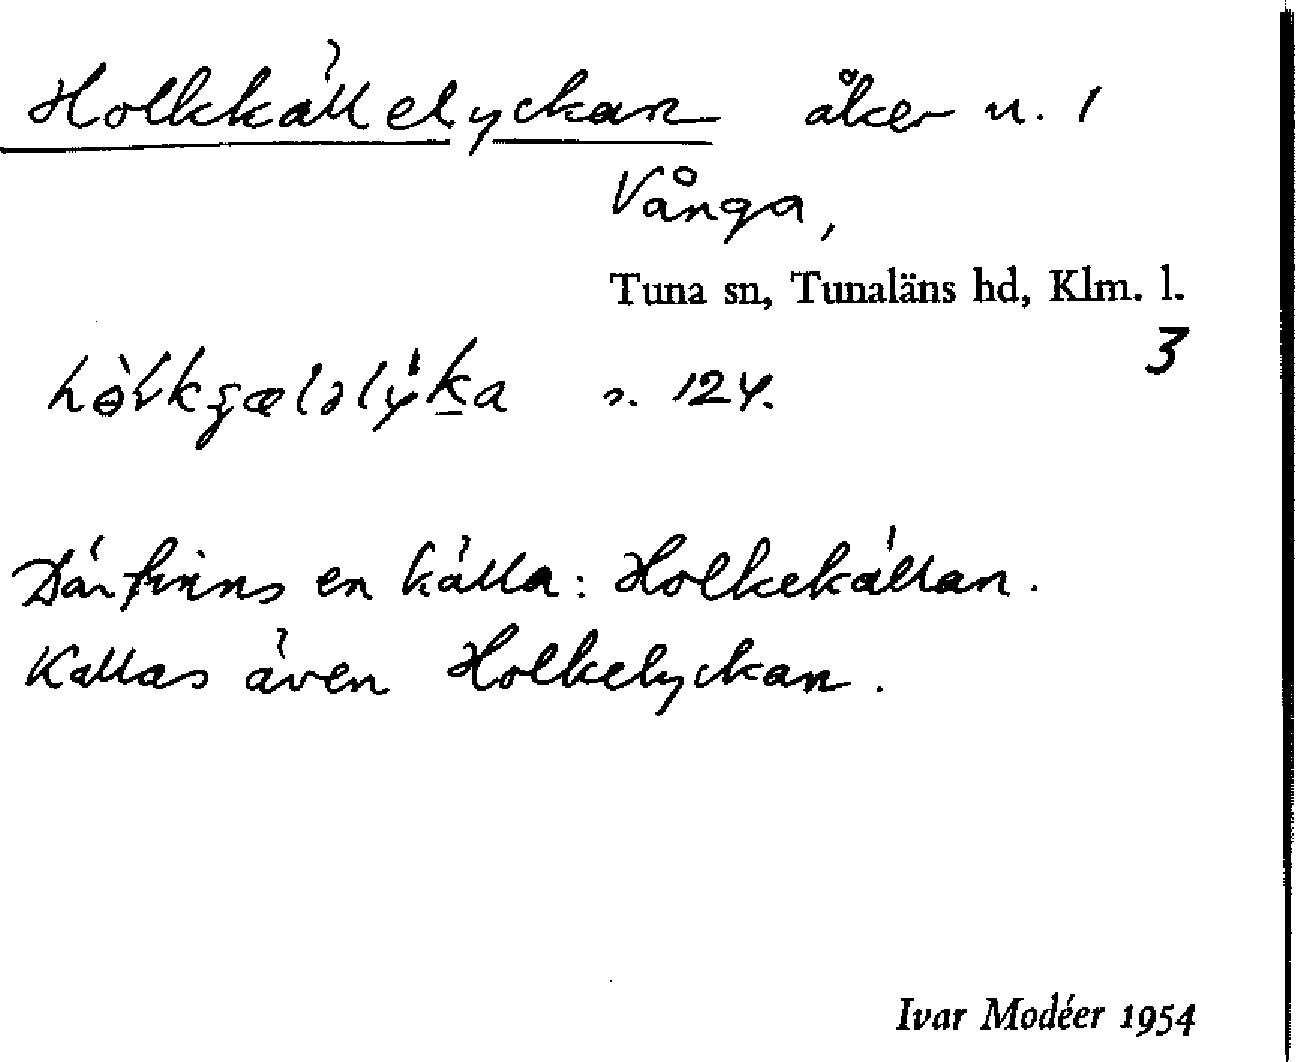 Holkkällelyckan åker n. 1
Vånga,
Tuna sn, Tunaläns hd, Klm. l.
3
s. 124.
Där finns en källa: Holkekällan.
Kallas även Holkelyckan.
Ivar Modéer 1954